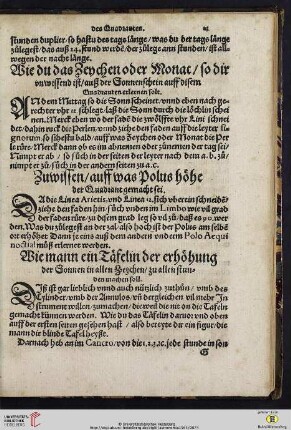 des Quadranten.
stunden duplier / so hastu des tags länge / was du der tags länge
zůlegest / das auß 24. stund werdē / der zůlege ann stunden / ist all
wegen der nacht länge.
Wie du das Zeychen oder Monat / so dir
vnwissend ist / auß der Sonnenschein auff disem
Quadranten erlernen solt.
AN dem Mittag so die Sonn scheinet / vnnd eben nach ge
rechter vhr 12. schlegt / laß die Sonn durch die löchlin schei
nen. Merck eben wo der fadē die zwölffte vhr Lini schnei
det / dahin ruck die Perlen / vnnd ziehe den faden auff die leyter Si
gnorum / so sihestu bald / auff was Zeychen oder Monat die Per
le rürt. Merck dann ob es im abnemen oder zůnemen der tag sei /
Nimpt er ab / so sůch in der seiten der leyter nach dem a. b. zů
nimpt er zů / sůch in der andern seiten 2 a. c.
Zuwissen / auff was Polus höhe
der Quadrant gemacht sei.
DA die Linea Arietis, vnd Linea 12. sich vberein schneidē /
ziehe den faden hin / sůch vnden im Limbo wie vil grad
der fadē rüre / zu disem grad leg so vil zů / daß es 90. wer
den. Was du zůlegest an der zal / also hoch ist der Polus am selbē
ort erhöhet. Dann je eins auß dem andern vnd vom Polo Aequi
noctial můß erlernet werden.
Wie mann ein Täfelin der erhöhung
der Sonnen in allen Zeychen / zu allen stun
den machen soll.
DIß ist gar lieblich vnnd auch nützlich zuthůn / vmb des
Cylinder, vmb der Annulos, vñ dergleichen vil mehr Jn
strument willen / zumachen / die weil die nit on die Tafeln
gemacht können werden. Wie du das Täfelin darzů / vnd oben
auff der ersten seiten gesehen hast / also bereyte dir ein figur / die
mann die blinde Tafel heyßt.
Darnach heb an im Cancro, von die 1. 2. 3. ꝛc. jede stunde in son
G
UNIVERSITÄTS-
BIBLIOTHEK
HEIDELBERG